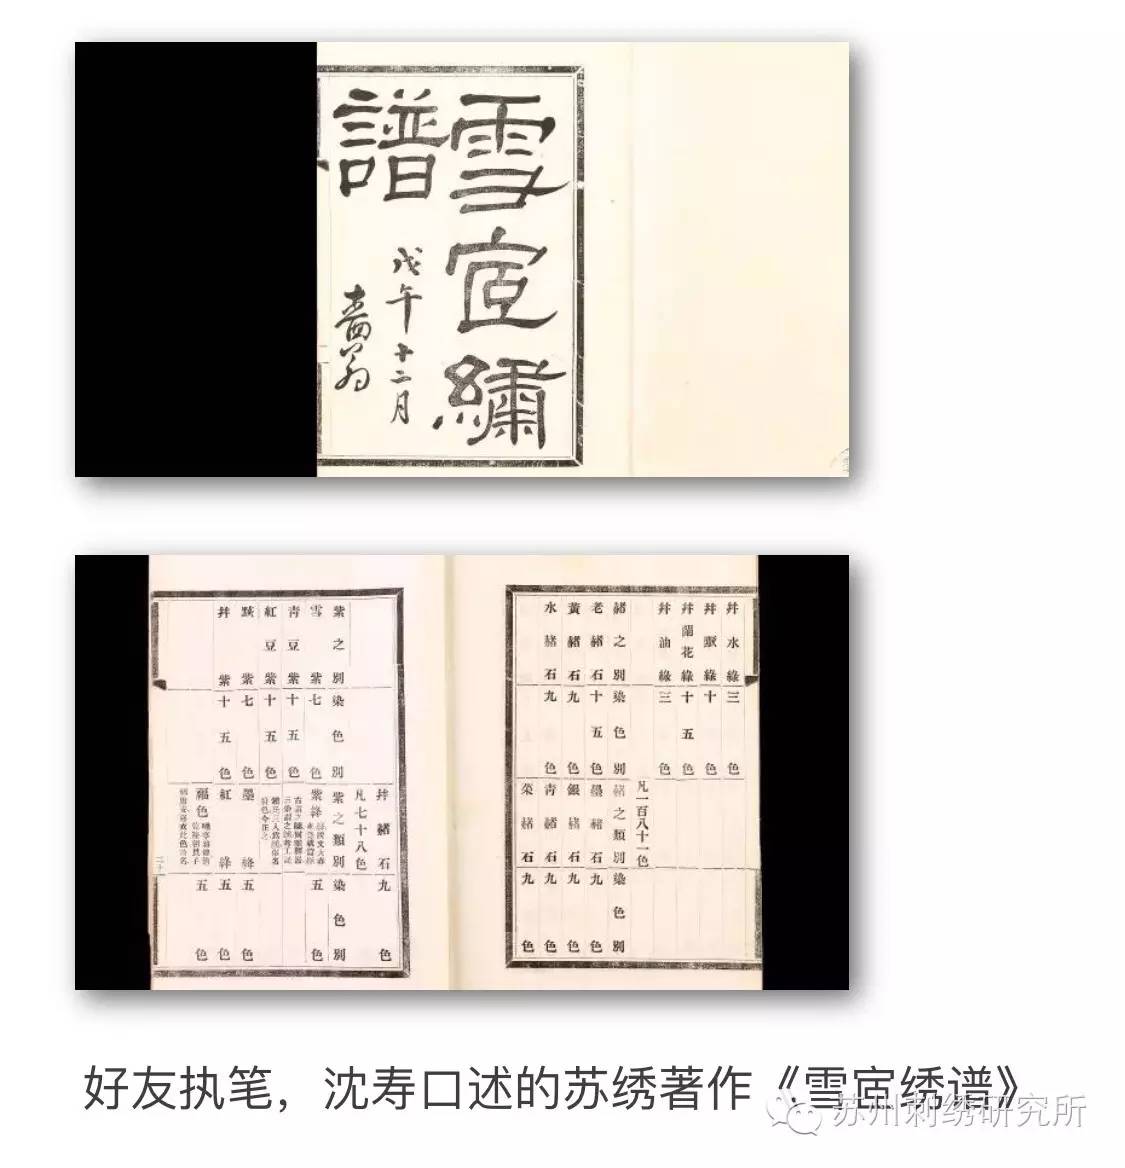 雪宧繡
譜
戊午十二月
嗇翁
幷水綠三色
幷墨綠十色
幷蘭花綠十五色
幷油綠三色
凡一百八十一色
赭之別染色別
老赭石十五色
黃赭石九色
水赭石九色
赭之類別染色別
墨赭石九色
銀赭石九色
青赭石九色
栄赭石九色
幷赭石九色
凡七十八色
紫之別染色別
雪紫七色
青豆紫十五色
紅豆紫十五色
黕紫七色
幷紫十五色
紫之類別染色別
紫絳五色
墨絳五色
紅絳五色
福色五色
二十
好友执笔，沈寿口述的苏绣著作《雪宧绣谱》
苏州刺绣研究所